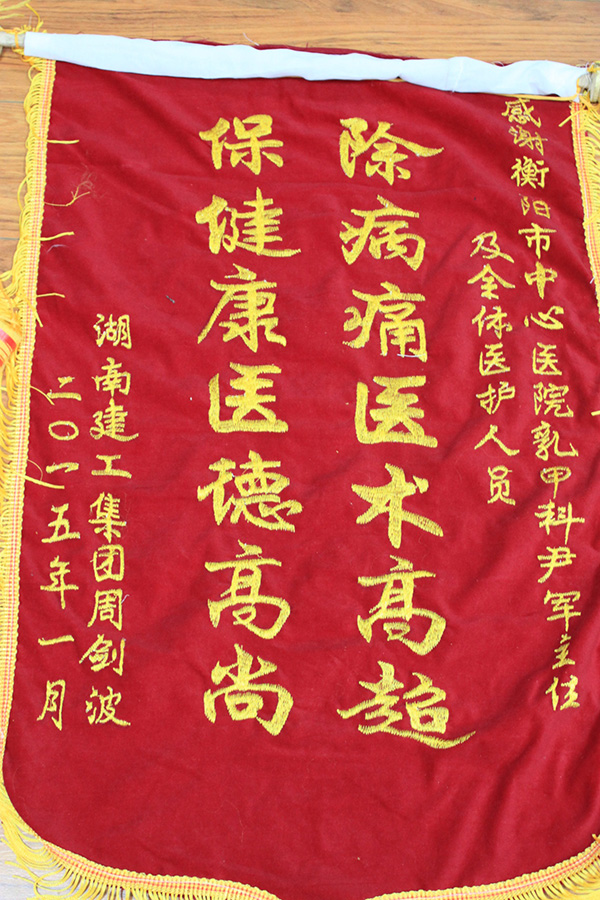 感谢衡阳市中心医院乳甲科尹军主任
及全体医护人员
除病痛医术高超
保健康医德高尚
湖南建工集团周剑波
二〇一五年一月